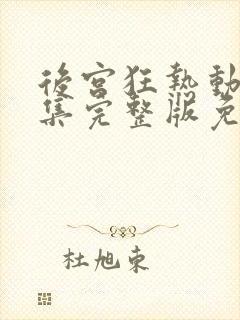 後宮狂熱動
集完整版免
杜旭東